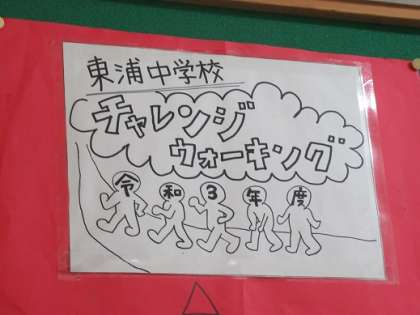 東浦中学校
チャレンジ
ウォーキング
令和3年度